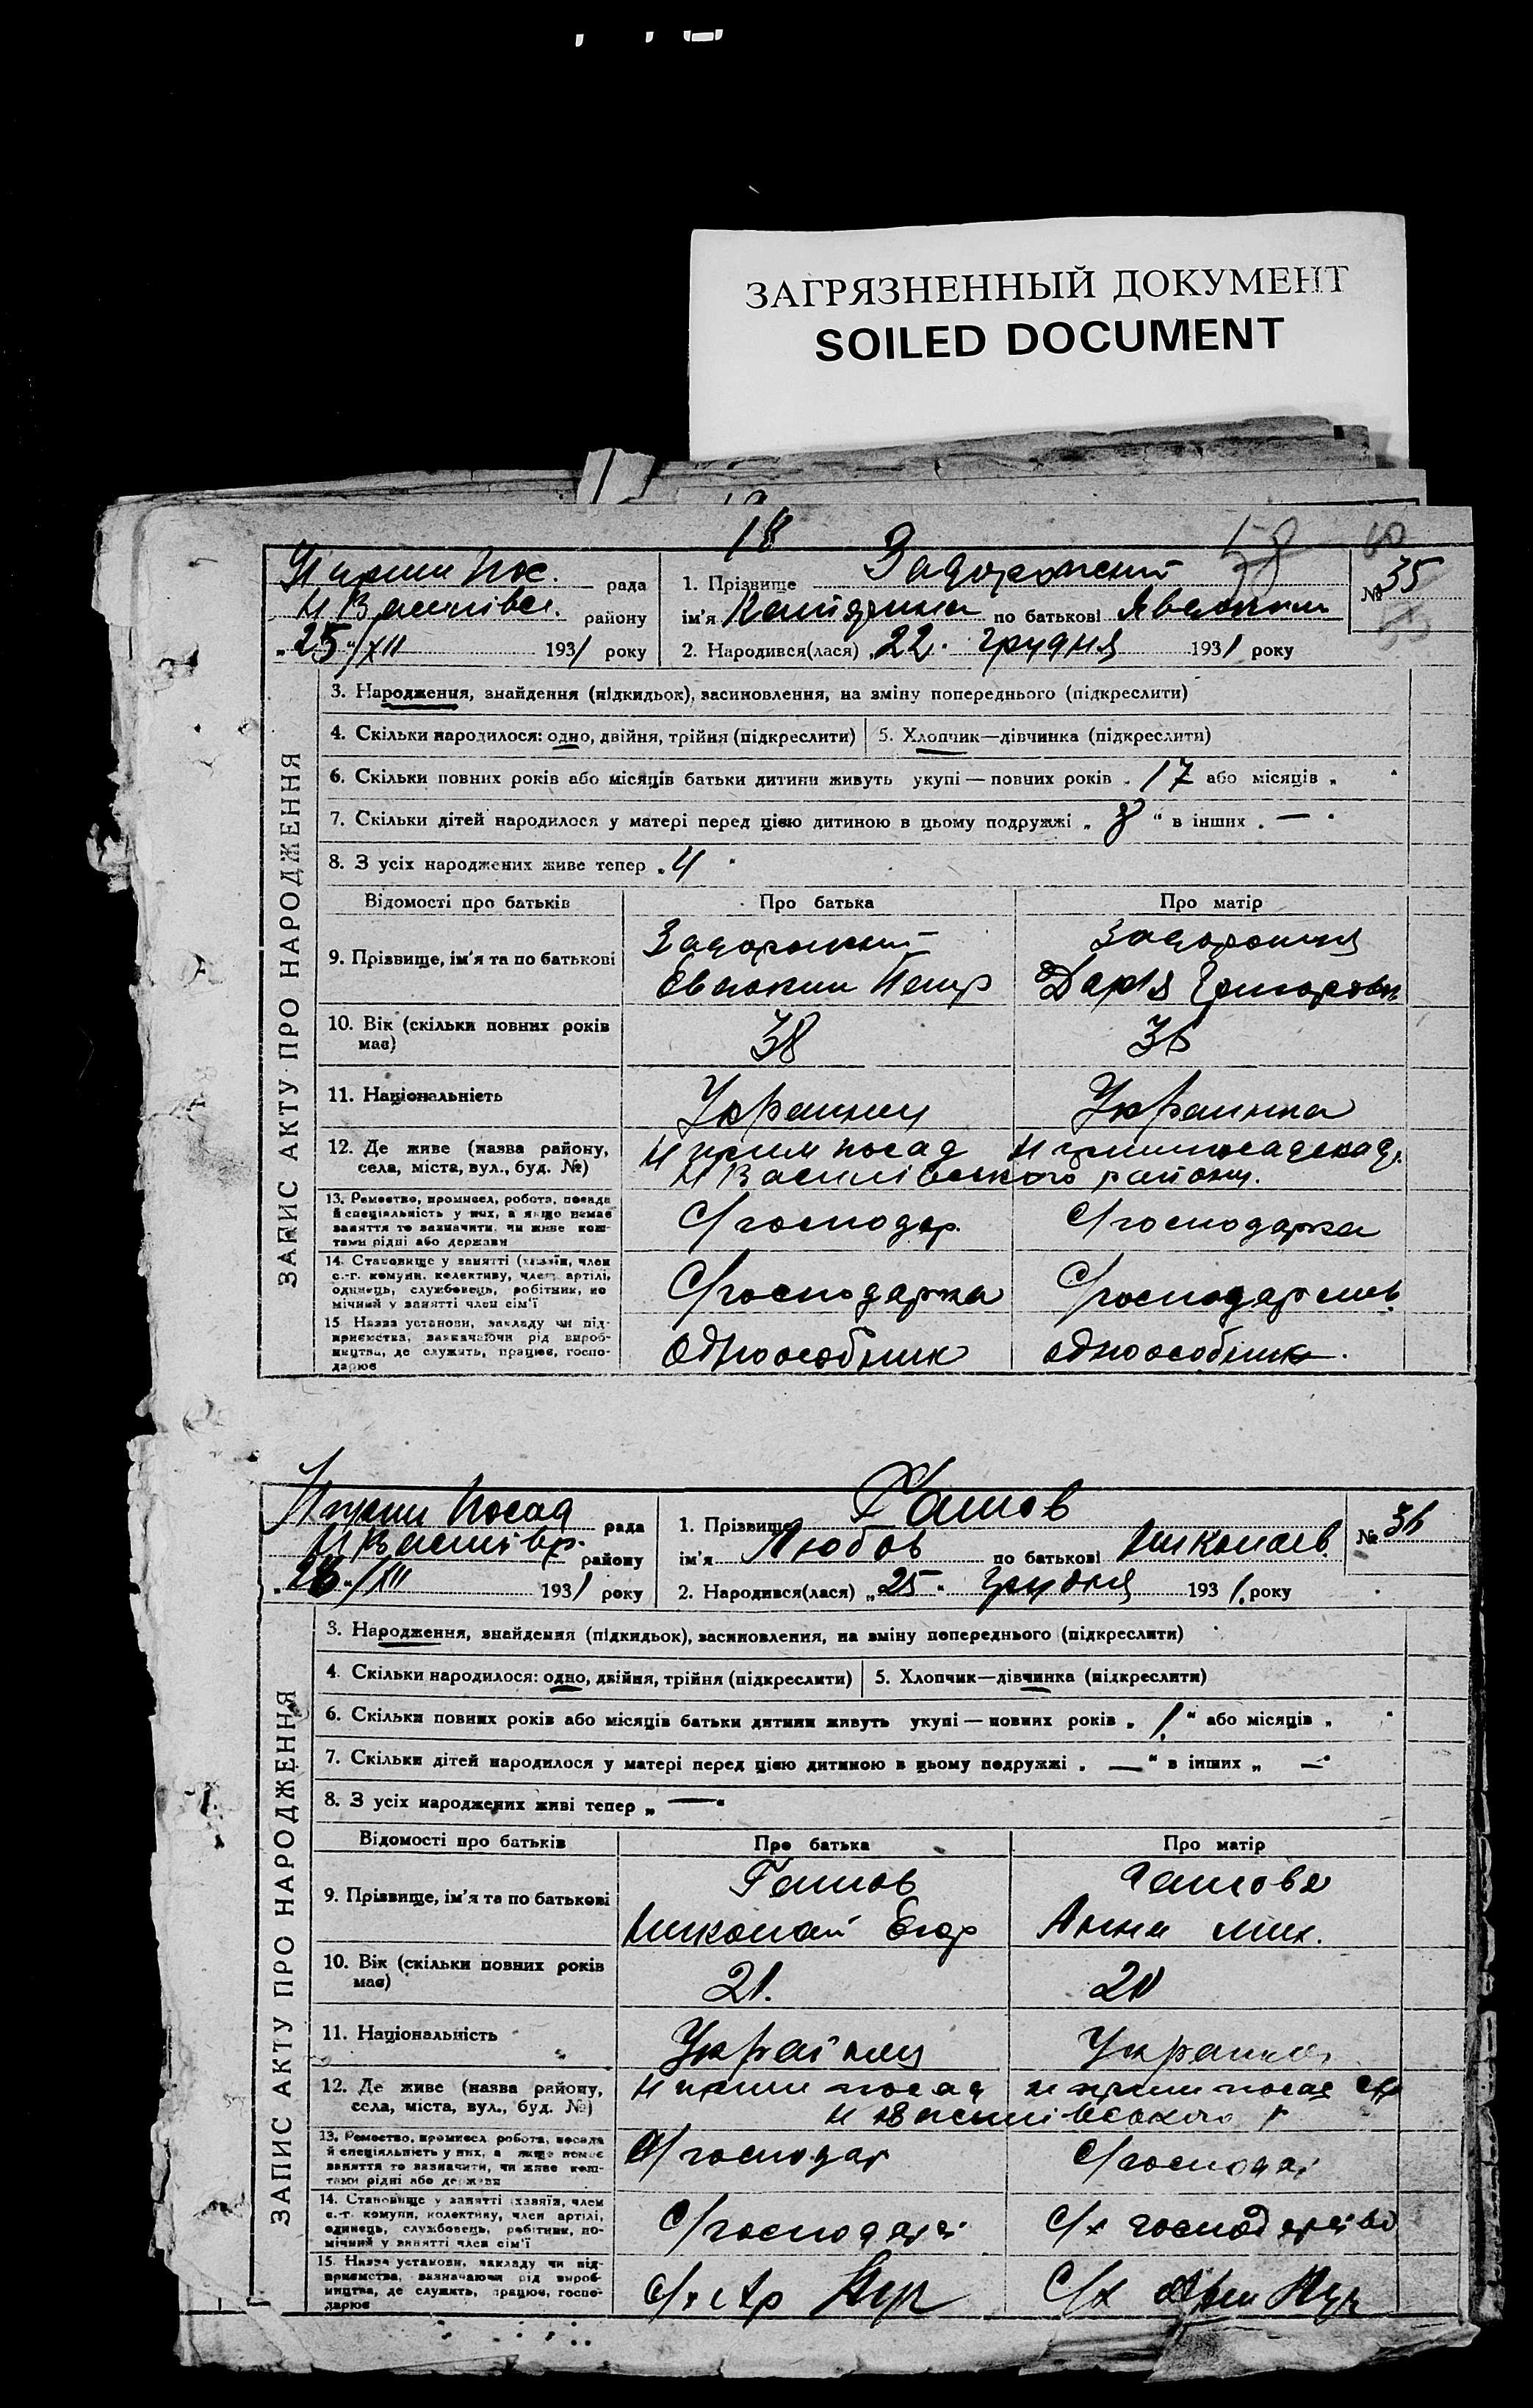 ЗАГРЯЗНЕННЫЙ ДОКУМЕНТ
SOILED DOCUMENT
18
58 60
рада
району
„25“/XII 1931 року
1. Прізвище Задорожний
ім'я по батькові
2. Народився(лася) „22“ грудня 1931 року
№ 35
ЗАПИС АКТУ ПРО НАРОДЖЕННЯ
3. Народження, знайдення (підкидьок), васиновлення, на зміну попереднього (підкреслити)
4. Скільки народилося: одно, двійня, трійня (підкреслити)
5. Хлопчик—дівчинка (підкреслити)
6. Скільки повних років або місяців батьки дитини живуть укупі — повних років „17 або місяців „
7. Скільки дітей народилося у матері перед цією дитиною в цьому подружжі „8“ в інших „—“
8. З усіх народжених живе тепер „4“
Відомості про батьків
Про батька
Про матір
9. Прізвище, ім'я та по батькові
Задорожний
Евдоким Петр
Задорожня
Дар'я Григоровн
10. Вік (скільки повних років має)
38
36
11. Національність
Украинец
Украинка
12. Де живе (назва району,
села, міста, вул., буд. №)
посад
М Василівського району.
13. Ремество, промисел, робота, посада
й спеціальність у них, а якщо немає
заняття то зазначити, чи живе кош-
тами рідні або держави
С/господар.
С/господарка
14. Становище у занятті (хазяїн, член
с.-г. комуни, колективу, член артілі,
одинець, службовець, робітник, по
мічний у занятті член сім'ї
С/господарка
15. Назва установи, закладу чи під-
приємства, зазначаючи рід вироб-
ництва, де служить, працює, госпо-
дарює
одноособник
одноособник.
Посад рада
району
„26“/XII 1931 року
1. Прізвище Гашов
ім'я Любов по батькові Николаев.
2. Народився(лася) „25“ грудня 1931. року
№ 36
ЗАПИС АКТУ ПРО НАРОДЖЕННЯ
3. Народження, знайдення (підкидьок), васиновлення, на зміну попереднього (підкреслити)
4. Скільки народилося: одно, двійня, трійня (підкреслити)
5. Хлопчик—дівчинка (підкреслити)
6. Скільки повних років або місяців батьки дитини живуть укупі — повних років „1“ або місяців „ “
7. Скільки дітей народилося у матері перед цією дитиною в цьому подружжі „—“ в інших „—“
8. З усіх народжених живі тепер „—“
Відомості про батьків
Про батька
Про матір
9. Прізвище, ім'я та по батькові
Гашов
Николай Егор
Гашова
Анна мих.
10. Вік (скільки повних років має)
21.
20
11. Національність
Українец
Украинка
12. Де живе (назва району,
села, міста, вул., буд. №)
посад
М Василівського р
13. Ремество, промисел робота, посада
й спеціальність у них, а якщо немає
заняття то зазначити, чи живе кош-
тами рідні або держави
С/господар
С/господар
14. Становище у занятті (хазяїн, член
с.-г. комуни, колективу, член артілі,
одинець, службовець, робітник, по-
мічний у занятті член сім'ї
С/господар
С/х господарство
15. Назва установи, закладу чи під-
приємства, зазначаючи рід вироб-
ництва, де служить, працює, госпо-
дарює
С/х